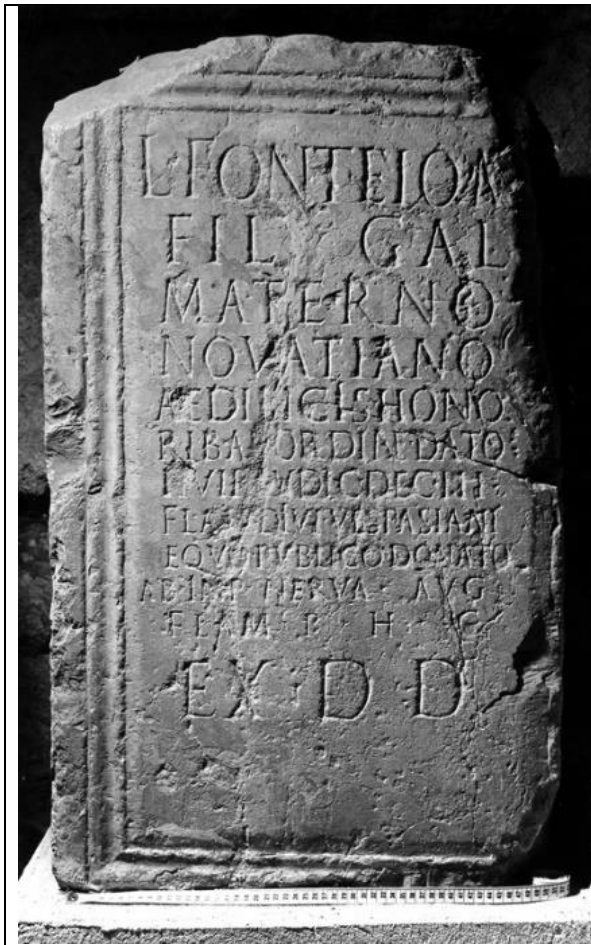 L FONTEIO M
FIL GAL
MATERNO
NOVATIANO
AEDILICIS HONO
RIB AB ORDINE DATO
II VIR IVDIC DEC III
FLAM DIVI VESPASIANI
EQVO PVBLICO DONATO
AB IMP NERVA AVG
FLAM P H C
EX D D